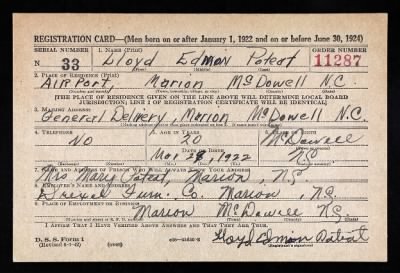 REGISTRATION CARD—(Men born on or after January 1, 1922 and on or before June 30, 1924)
SERIAL NUMBER 1. NAME (Print) ORDER NUMBER
N 33 Lloyd Edmon Poteat 11287
2. PLACE OF RESIDENCE (Print)
Airport Marion McDowell N.C.
[THE PLACE OF RESIDENCE GIVEN ON THE LINE ABOVE WILL DETERMINE LOCAL BOARD
JURISDICTION; LINE 2 OF REGISTRATION CERTIFICATE WILL BE IDENTICAL]
3. MAILING ADDRESS
General Delivery, Marion McDowell N.C.
4. TELEPHONE 5. AGE IN YEARS 6. PLACE OF BIRTH
No 20 McDowell
DATE OF BIRTH
Mar 28, 1922 N.C.
7. NAME AND ADDRESS OF PERSON WHO WILL ALWAYS KNOW YOUR ADDRESS
Mrs Mary Poteat, Marion, N.C.
8. EMPLOYER'S NAME AND ADDRESS
Drexel Furn. Co. Marion, N.C.
9. PLACE OF EMPLOYMENT OR BUSINESS
Marion McDowell N.C.
I AFFIRM THAT I HAVE VERIFIED ABOVE ANSWERS AND THAT THEY ARE TRUE.
D. S. S. Form 1
Lloyd Edmon Poteat